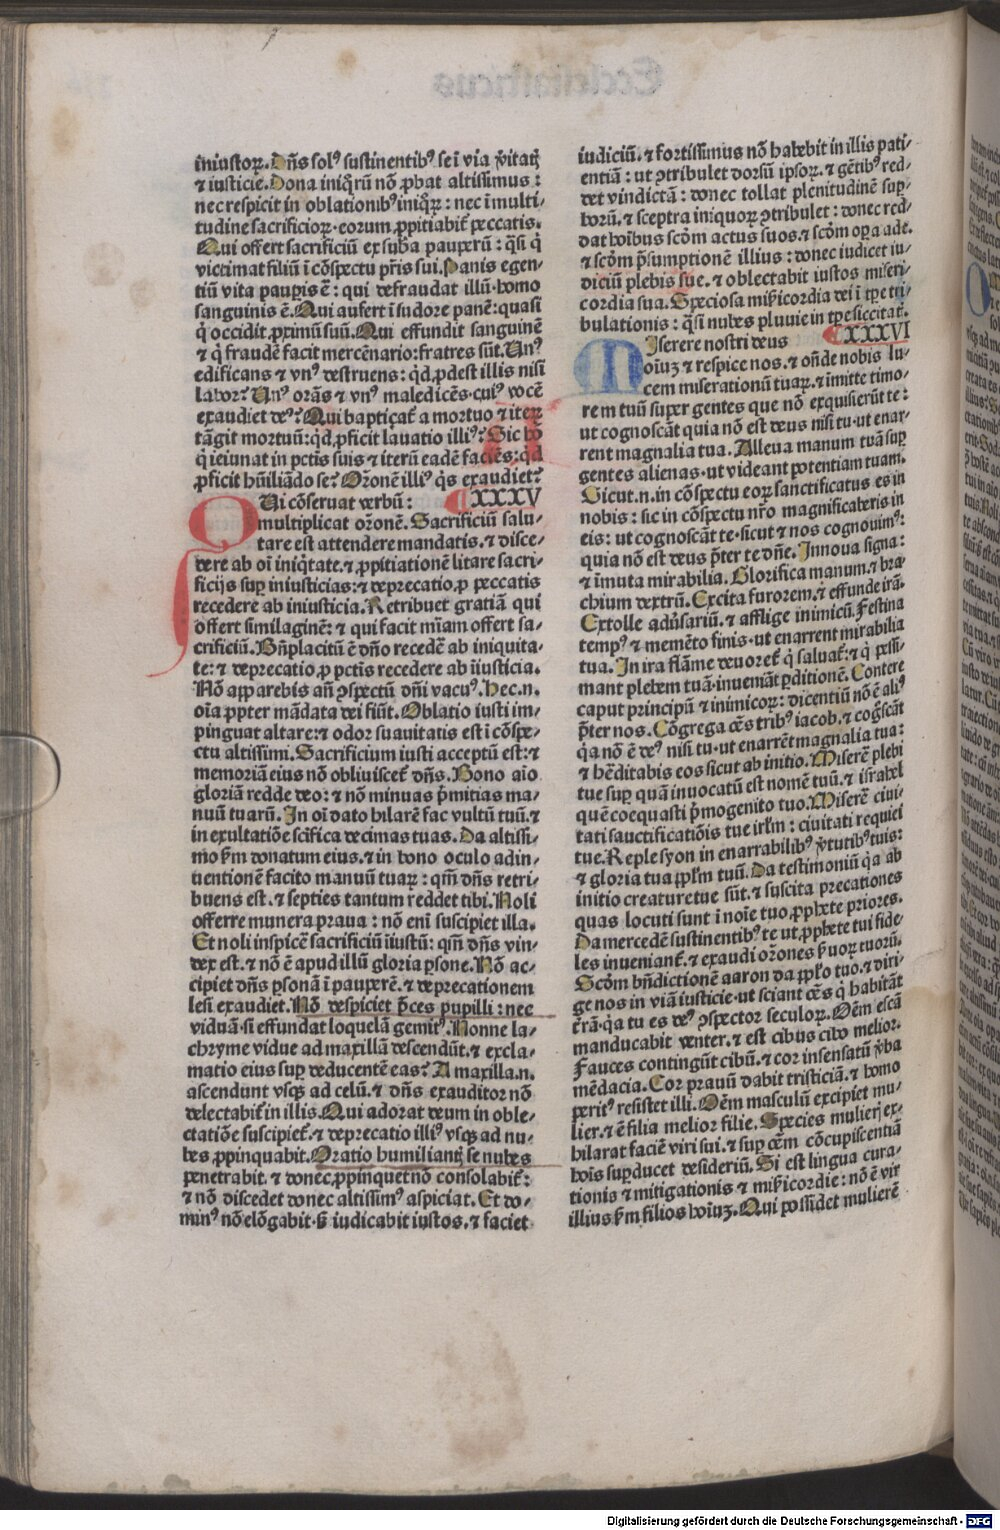 iniustoꝝ. Dn̄s solꝰ sustinentibꝰ se ī via v̓itatꝭ
⁊ iusticie. Dona iniq̊rū nō ꝓbat altissimus :
nec respicit in oblationibꝰ iniq̊ꝝ : nec ī multi⸗
tudine sacrificioꝝ eorum ꝓpitiabit̄ peccatis.
Qui offert sacrificiū ex suba pauꝑū : q̄si q̇
victimat filiū ī cōspectu pr̄is sui. Panis egen⸗
tiū vita pauꝑis ē : qui defraudat illū homo
sanguinis ē. Qui aufert ī sudore panē: quasi
q̇ occidit ꝓximū suū. Qui effundit sanguinē
⁊ q̇ fraudē facit mercēnario: fratres sūt. Unꝰ
edificans ⁊ vnꝰ destruens : qd̓ ꝓdest illis nisi
labor? Unꝰ orās ⁊ vnꝰ maledicēs. cuiꝰ vocē
exaudiet deꝰ? Qui bapticat̄ a mortuo ⁊ iteꝝ
tāgit mortuū: qd̓ ꝓficit lauatio illiꝰ? Sic hō
q̇ ieiunat in pctīs suis ⁊ iterū eadē faciēs : qd̓
ꝓficit hūiliādo se? Or̄onē illiꝰ q̇s exaudiet?
Qui cōseruat verbū : XXXV
multiplicat or̄onē. Sacrificiū salu⸗
tare est attendere mandatis. ⁊ disce⸗
dere ab oī iniq̇tate. ⁊ ꝓpitiationē litare sacri⸗
ficijs suꝑ iniusticias: ⁊ deprecatio ꝓ peccatis
recedere ab iniusticia. Retribuet gratiā qui
offert similaginē: ⁊ qui facit mīam offert sa⸗
crificiū. Bn̄placitū ē dn̄o recedē ab iniquita⸗
te: ⁊ deprecatio ꝓ pctīs recedere ab īiusticia.
Nō apparebis an̄ ꝯspectū dn̄i vacuꝰ. Hec.n.
oīa ꝓpter mādata dei fiūt. Oblatio iusti im⸗
pinguat altare: ⁊ odor suauitatis est ī cōspe⸗
ctu altissimi. Sacrificium iusti acceptū est: ⁊
memoriā eius nō obliuiscet̄ dn̄s. Bono aīo
gloriā redde deo: ⁊ nō minuas p̄mitias ma⸗
nuū tuarū. In oī dato hilarē fac vultū tuū. ⁊
in exultatiōe sc̄ifica decimas tuas. Da altissi⸗
mo ẜm donatum eius. ⁊ in bono oculo adin⸗
uentionē facito manuū tuaꝝ : qm̄ dn̄s retri⸗
buens est. ⁊ septies tantum reddet tibi. Noli
offerre munera praua : nō enī suscipiet illa.
Et noli inspicē sacrificiū iiustū: qm̄ dn̄s vin⸗
dex est. ⁊ nō ē apud illū gloria ꝑsone. Nō ac⸗
cipiet dn̄s ꝑsonā ī pauꝑē. ⁊ deprecationem
lesi exaudiet. Nō despiciet p̄ces pupilli : nec
viduā si effundat loquelā gemitꝰ. Nonne la⸗
chryme vidue ad maxillā descendūt. ⁊ excla⸗
matio eius suꝑ deducentē eas? A maxilla.n.
ascendunt vsqꝫ ad celū. ⁊ dn̄s exauditor nō
delectabit̄ in illis. Qui adorat deum in oble⸗
ctatiōe suscipiet̄. ⁊ deprecatio illiꝰ vsqꝫ ad nu⸗
bes ꝓpinquabit. Oratio humiliantꝭ se nubes
penetrabit. ⁊ donec ꝓpinquet nō consolabit̄:
⁊ nō discedet donec altissimꝰ aspiciat. Et do⸗
minꝰ nō elōgabit. ẜ iudicabit iustos. ⁊ faciet
iudiciū. ⁊ fortissimus nō habebit in illis pati⸗
entiā : ut ꝯtribulet dorsū ipsoꝝ. ⁊ gētibꝰ red⸗
det vindictā : donec tollat plenitudinē suꝑ⸗
borū. ⁊ sceptra iniquoꝝ ꝯtribulet : donec red⸗
dat hoībus scd̄m actus suos. ⁊ scd̄m oꝑa ade.
⁊ scd̄m p̄sumptionē illius : donec iudicet iu⸗
diciū plebis sue. ⁊ oblectabit iustos miseri⸗
cordia sua. Speciosa mīscdia dei ī tꝑe tri⸗
bulationis : q̄si nubes pluuie in tꝑe siccitat̄.
Miserere nostri deus XXXVI
oīuꝫ ⁊ respice nos. ⁊ on̄de nobis lu⸗
cem miserationū tuaꝝ. ⁊ īmitte timo⸗
rem tuū super gentes que nō exquisierūt te :
ut cognoscāt quia nō est deus nisi tu. ut enar⸗
rent magnalia tua. Alleua manum tuā suꝑ
gentes alienas. ut videant potentiam tuam.
Sicut.n. in cōspectu eoꝝ sanctificatus es in
nobis : sic in cōspectu nr̄o magnificaberis in
eis: ut cognoscāt te. sicut ⁊ nos cognouimꝰ:
quia nō est deus p̄ter te dn̄e. Innoua signa :
⁊ īmuta mirabilia. Glorifica manum. ⁊ bra⸗
chium dextrū. Excita furorem. ⁊ effunde irā.
Extolle adūsariū. ⁊ afflige inimicū. Festina
tempꝰ ⁊ memēto finis. ut enarrent mirabilia
tua. In ira flāme deuoret̄ q̇ saluat̄: ⁊ q̇ pessi⸗
mant plebem tuā. inueniāt ꝑditionē. Contere
caput principū ⁊ inimicoꝝ : dicentiū nō ē aliꝰ
p̄ter nos. Cōgrega oēs tribꝰ iacob. ⁊ cog̓scāt
q̇a nō ē deꝰ nisi tu. ut enarrēt magnalia tua :
⁊ hēditabis eos sicut ab initio. Miserē plebi
tue suꝑ quā inuocatū est nomē tuū. ⁊ isrāhel
quē coequasti p̄mogenito tuo. Miserē ciui⸗
tati sauctificatiōis tue irlm̄ : ciuitati requiei
tue. Reple syon in enarrabilibꝰ v̓tutibꝰ tuis:
⁊ gloria tua pplm̄ tuū. Da testimoniū q̇a ab
initio creature tue sūt. ⁊ suscita precationes
quas locuti sunt ī noīe tuo ꝓphete priores.
Da mercedē sustinentibꝰ te ut ꝓphete tui fide⸗
les inueniant̄. ⁊ exaudi or̄ones ẜuoꝝ tuorū.
Scd̄m bn̄dictionē aaron da pplo tuo. ⁊ diri⸗
ge nos in viā iusticie. ut sciant oēs q̇ habitāt
t̄rā. q̇a tu es deꝰ ꝯspector seculoꝝ. Oēm escā
manducabit venter. ⁊ est cibus cibo melior.
Fauces contingūt cibū. ⁊ cor insensatū v̓ba
mēdacia. Cor prauū dabit tristiciā. ⁊ homo
peritꝰ resistet illi. Oēm masculū excipiet mu⸗
lier. ⁊ ē filia melior filie. Species mulierꝭ ex⸗
hilarat faciē viri sui. ⁊ suꝑ oēm cōcupiscentiā
hoīs suꝑducet desideriū. Si est lingua cura⸗
tionis ⁊ mitigationis ⁊ mīscdie : nō ē vir
illius ẜm filios hoīuꝫ. Qui possidet mulierē
Digitalisierung gefördert durch die Deutsche Forschungsgemeinschaft - DFG